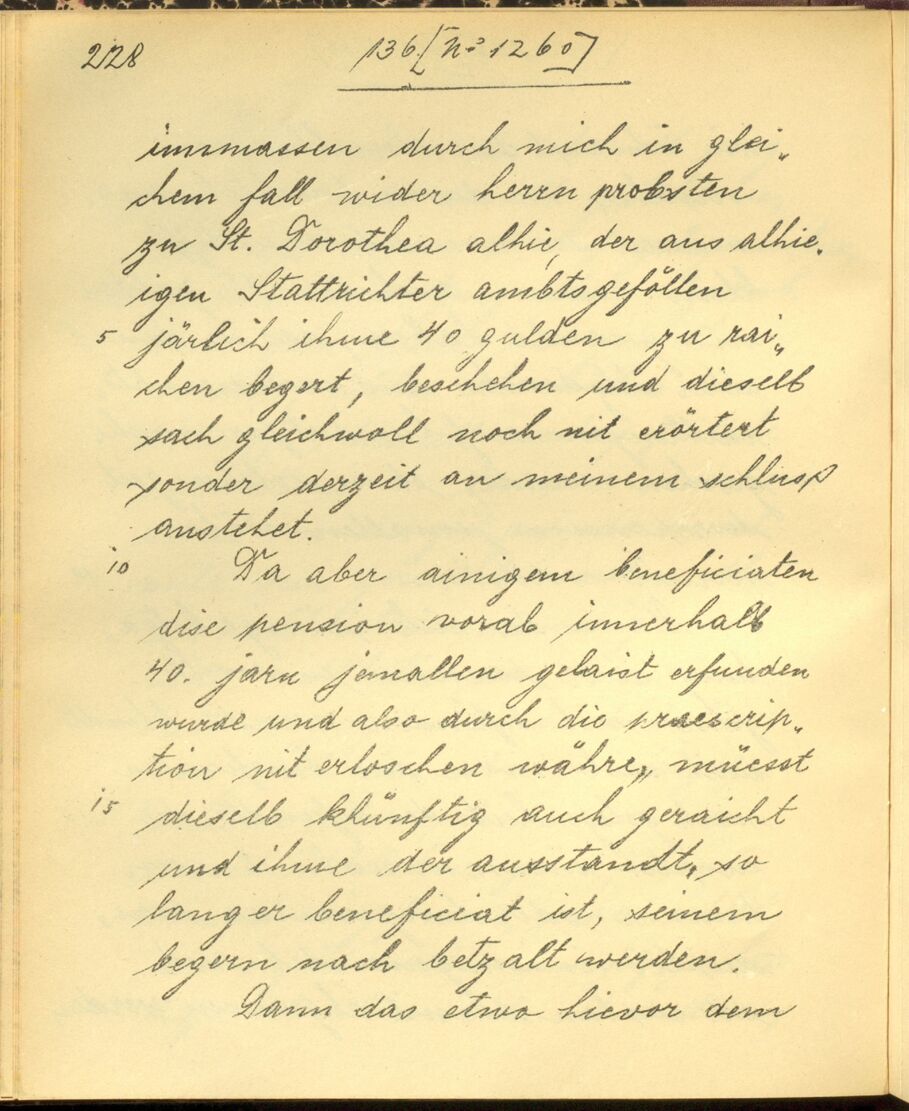 228
136 [No 1260]
immassen durch mich in glei„
chem fall wider herrn probsten
zu St. Dorothea alhie, der aus alhie„
igen Stattrichter ambtsgeföllen
5 järlich ihme 40 gulden zu rai„
chen begert, beschehen und dieselb
sach gleichwoll noch nit erörtert
sonder derzeit an meinem schluss
anstehet.
10 Da aber ainigem beneficiaten
dise pension vorab innerhalb
40. jarn jemallen gelaist erfunden
wurde und also durch die praescrip„
tion nit erloschen währe, müesst
15 dieselb khünftig auch geraicht
und ihme der ausstandt, so
lang er beneficiat ist, seinem
begern nach betzalt werden.
Dann das etwo hievor dem